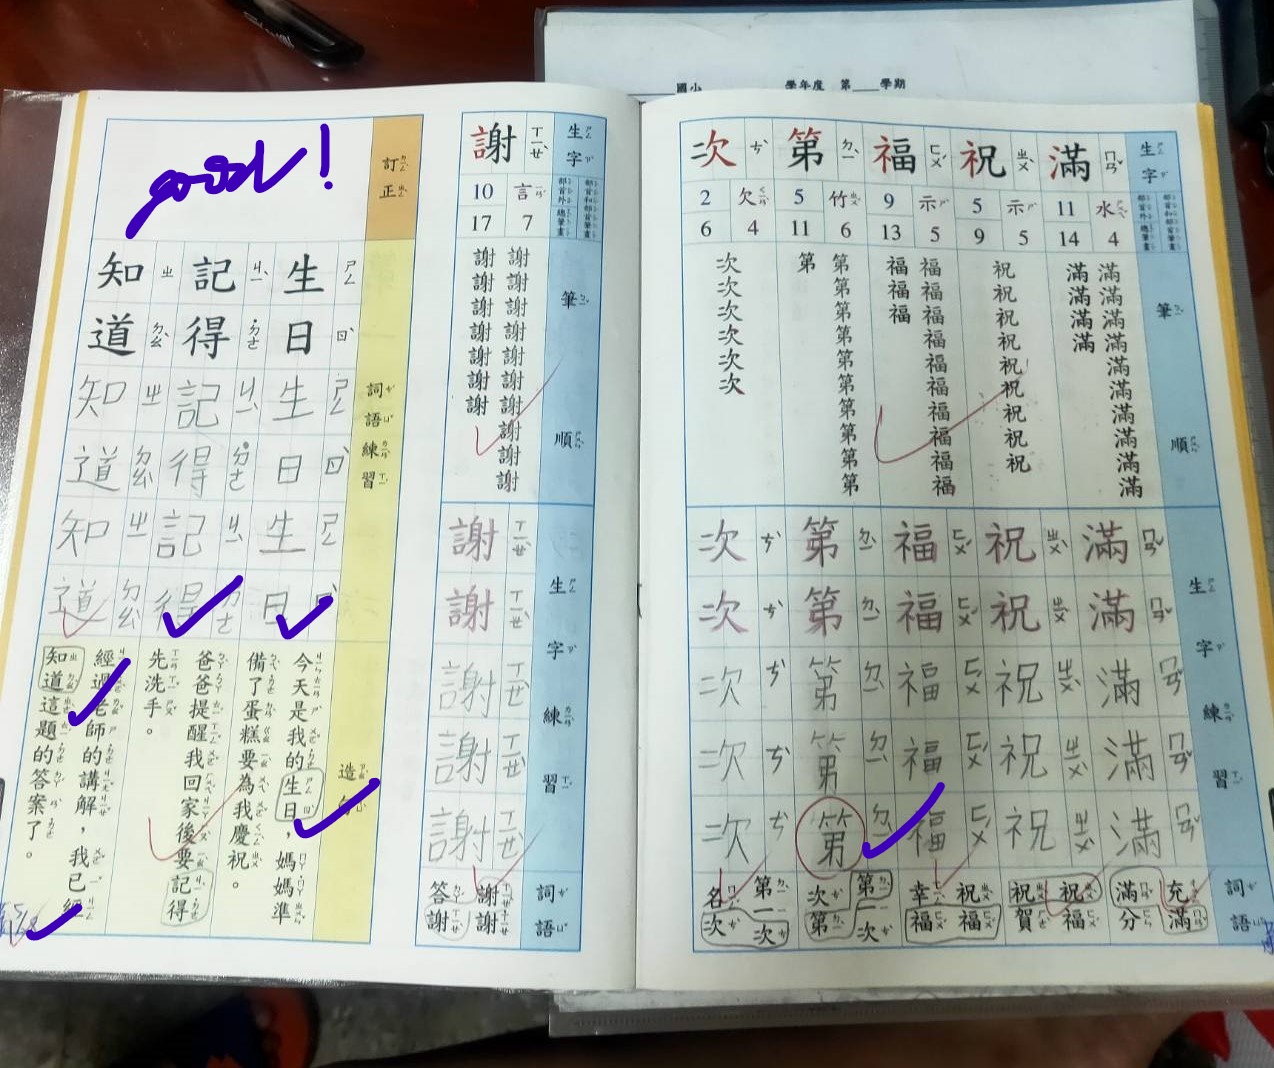 國小 學年度 第 學期
生字 ㄕㄥ ㄗˋ
滿 ㄇㄢˇ
水 ㄕㄨㄟˇ
11 14 4
祝 ㄓㄨˋ
示 ㄕˋ
5 9 5
福 ㄈㄨˊ
示 ㄕˋ
9 13 5
第 ㄉㄧˋ
竹 ㄓㄨˊ
5 11 6
次 ㄘˋ
欠 ㄑㄧㄢˋ
2 6 4
筆順
滿滿滿滿滿滿滿滿滿滿
滿滿滿滿
祝祝祝祝祝祝祝祝祝
福福福福福福福福福福
福福福
第第第第第第第第第第
第
次次次次次次
生字練習
滿 ㄇㄢˇ
滿 ㄇㄢˇ
滿 ㄇㄢˇ
滿 ㄇㄢˇ
滿 ㄇㄢˇ
祝 ㄓㄨˋ
祝 ㄓㄨˋ
祝 ㄓㄨˋ
祝 ㄓㄨˋ
祝 ㄓㄨˋ
福 ㄈㄨˊ
福 ㄈㄨˊ
福 ㄈㄨˊ
福 ㄈㄨˊ
福 ㄈㄨˊ
第 ㄉㄧˋ
第 ㄉㄧˋ
第 ㄉㄧˋ
第 ㄉㄧˋ
第 ㄉㄧˋ
次 ㄘˋ
次 ㄘˋ
次 ㄘˋ
次 ㄘˋ
次 ㄘˋ
詞語
充滿
滿分
祝福
祝賀
祝福
幸福
第一次
次第
第一次
名次
生字 ㄕㄥ ㄗˋ
謝 ㄒㄧㄝˋ
言 ㄧㄢˊ
10 17 7
筆順
謝謝謝謝謝謝謝謝謝謝
謝謝謝謝謝謝謝
生字練習
謝 ㄒㄧㄝˋ
謝 ㄒㄧㄝˋ
謝 ㄒㄧㄝˋ
謝 ㄒㄧㄝˋ
謝 ㄒㄧㄝˋ
詞語
謝謝
答謝
訂正
good!
詞語練習
生日 ㄕㄥ ㄖˋ
生日 ㄕㄥ ㄖˋ
生日
記得 ㄐㄧˋ ˙ㄉㄜ
記得 ㄐㄧˋ ˙ㄉㄜ
記得
知道 ㄓ ㄉㄠˋ
知道 ㄓ ㄉㄠˋ
知道 ㄓ ㄉㄠˋ
造句
今天是我的生日，媽媽準
備了蛋糕要為我慶祝。
爸爸提醒我回家後要記得
先洗手。
經過老師的講解，我已經
知道這題的答案了。